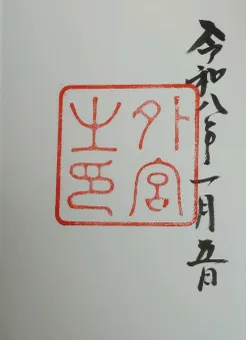 令和八年一月五日
外宮
之印